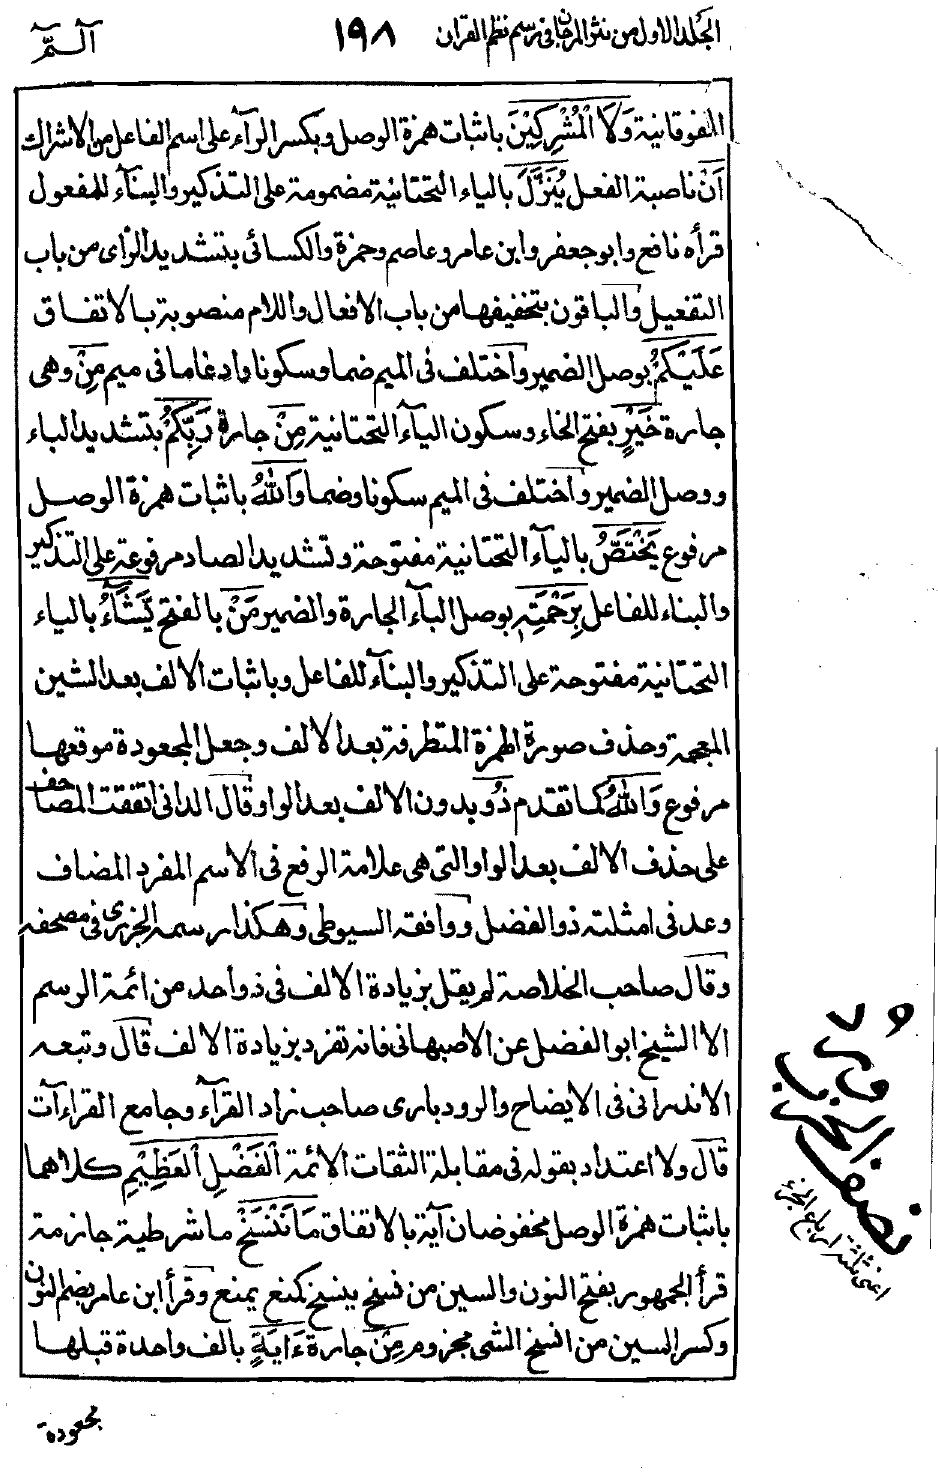 الجلد الاول من نثر المرجان في رسم نظم القران ١٩٨ آلـمّٓ
الفوقانية وَلَا الْمُشْرِكِيْنَ باثبات همزة الوصل وبكسر الرآء على اسم الفاعل من الاشراك
اَنْ ناصبة الفعل يُنَزَّلَ بالياء التحتانية مضمومة على التذكير والبنآء للمفعول
قرأه نافع وابو جعفر وابن عامر وعاصم وحمزة والكسائى بتشديد الزاى من باب
التفعيل والباقون بتخفيفها من باب الافعال واللام منصوبة بالاتفاق
عَلَيْكُمْ بوصل الضمير واختلف فى الميم ضما وسكونا وادغاما فى ميم مِنْ وهى
جارة خَيْرٍ بفتح الخاء وسكون اليآء التحتانية مِنْ جارة رَبِّكُمْ بتشديد الباء
ووصل الضمير واختلف فى الميم سكونا وضما وَاللّٰهُ باثبات همزة الوصل
مرفوع يَخْتَصُّ باليآء التحتانية مفتوحة وتشديد الصاد مرفوعة على التذكير
والبناء للفاعل بِرَحْمَتِهٖ بوصل البآء الجارة والضمير مَنْ بالفتح يَّشَآءُ بالياء
التحتانية مفتوحة على التذكير والبنآء للفاعل وباثبات الالف بعد الشين
المعجمة وحذف صورة الهمزة المتطرفة بعد الالف وجعل المجعودة موقعها
مرفوع وَاللّٰهُ كما تقدم ذُو بدون الالف بعد الواو قال الدانى اتفقت المصاحف
على حذف الالف بعد الواو التى هى علامة الرفع فى الاسم المفرد المضاف
وعد فى امثلته ذو الفضل ووافقه السيوطى وهكذا رسمه الجزرى فى مصحفه
وقال صاحب الخلاصة لم يقل بزيادة الالف فى ذو احد من ائمة الرسم
الا الشيخ ابو الفضل عن الاصبهانى فانه تفرد بزيادة الالف قال وتبعه
الاندرانى فى الايضاح والرودبارى صاحب زاد القرآء وجامع القراءآت
قال ولا اعتداد بقوله فى مقابلة الثقات الائمة الْفَضْلِ الْعَظِيْمِ كلاهما
باثبات همزة الوصل مخفوضان آية بالاتفاق مَا نَنْسَخْ ما شرطية جازمة
قرأ الجمهور بفتح النون والسين من نسخ ينسخ كمنع يمنع وقرأ ابن عامر بضم النون
وكسر السين من انسخ الشى مجزوم مِنْ جارة ءَايَةٍ بالف واحدة قبلها
مجعودة
نصف الحزب
اعنى ثلثة ارباع الجزء